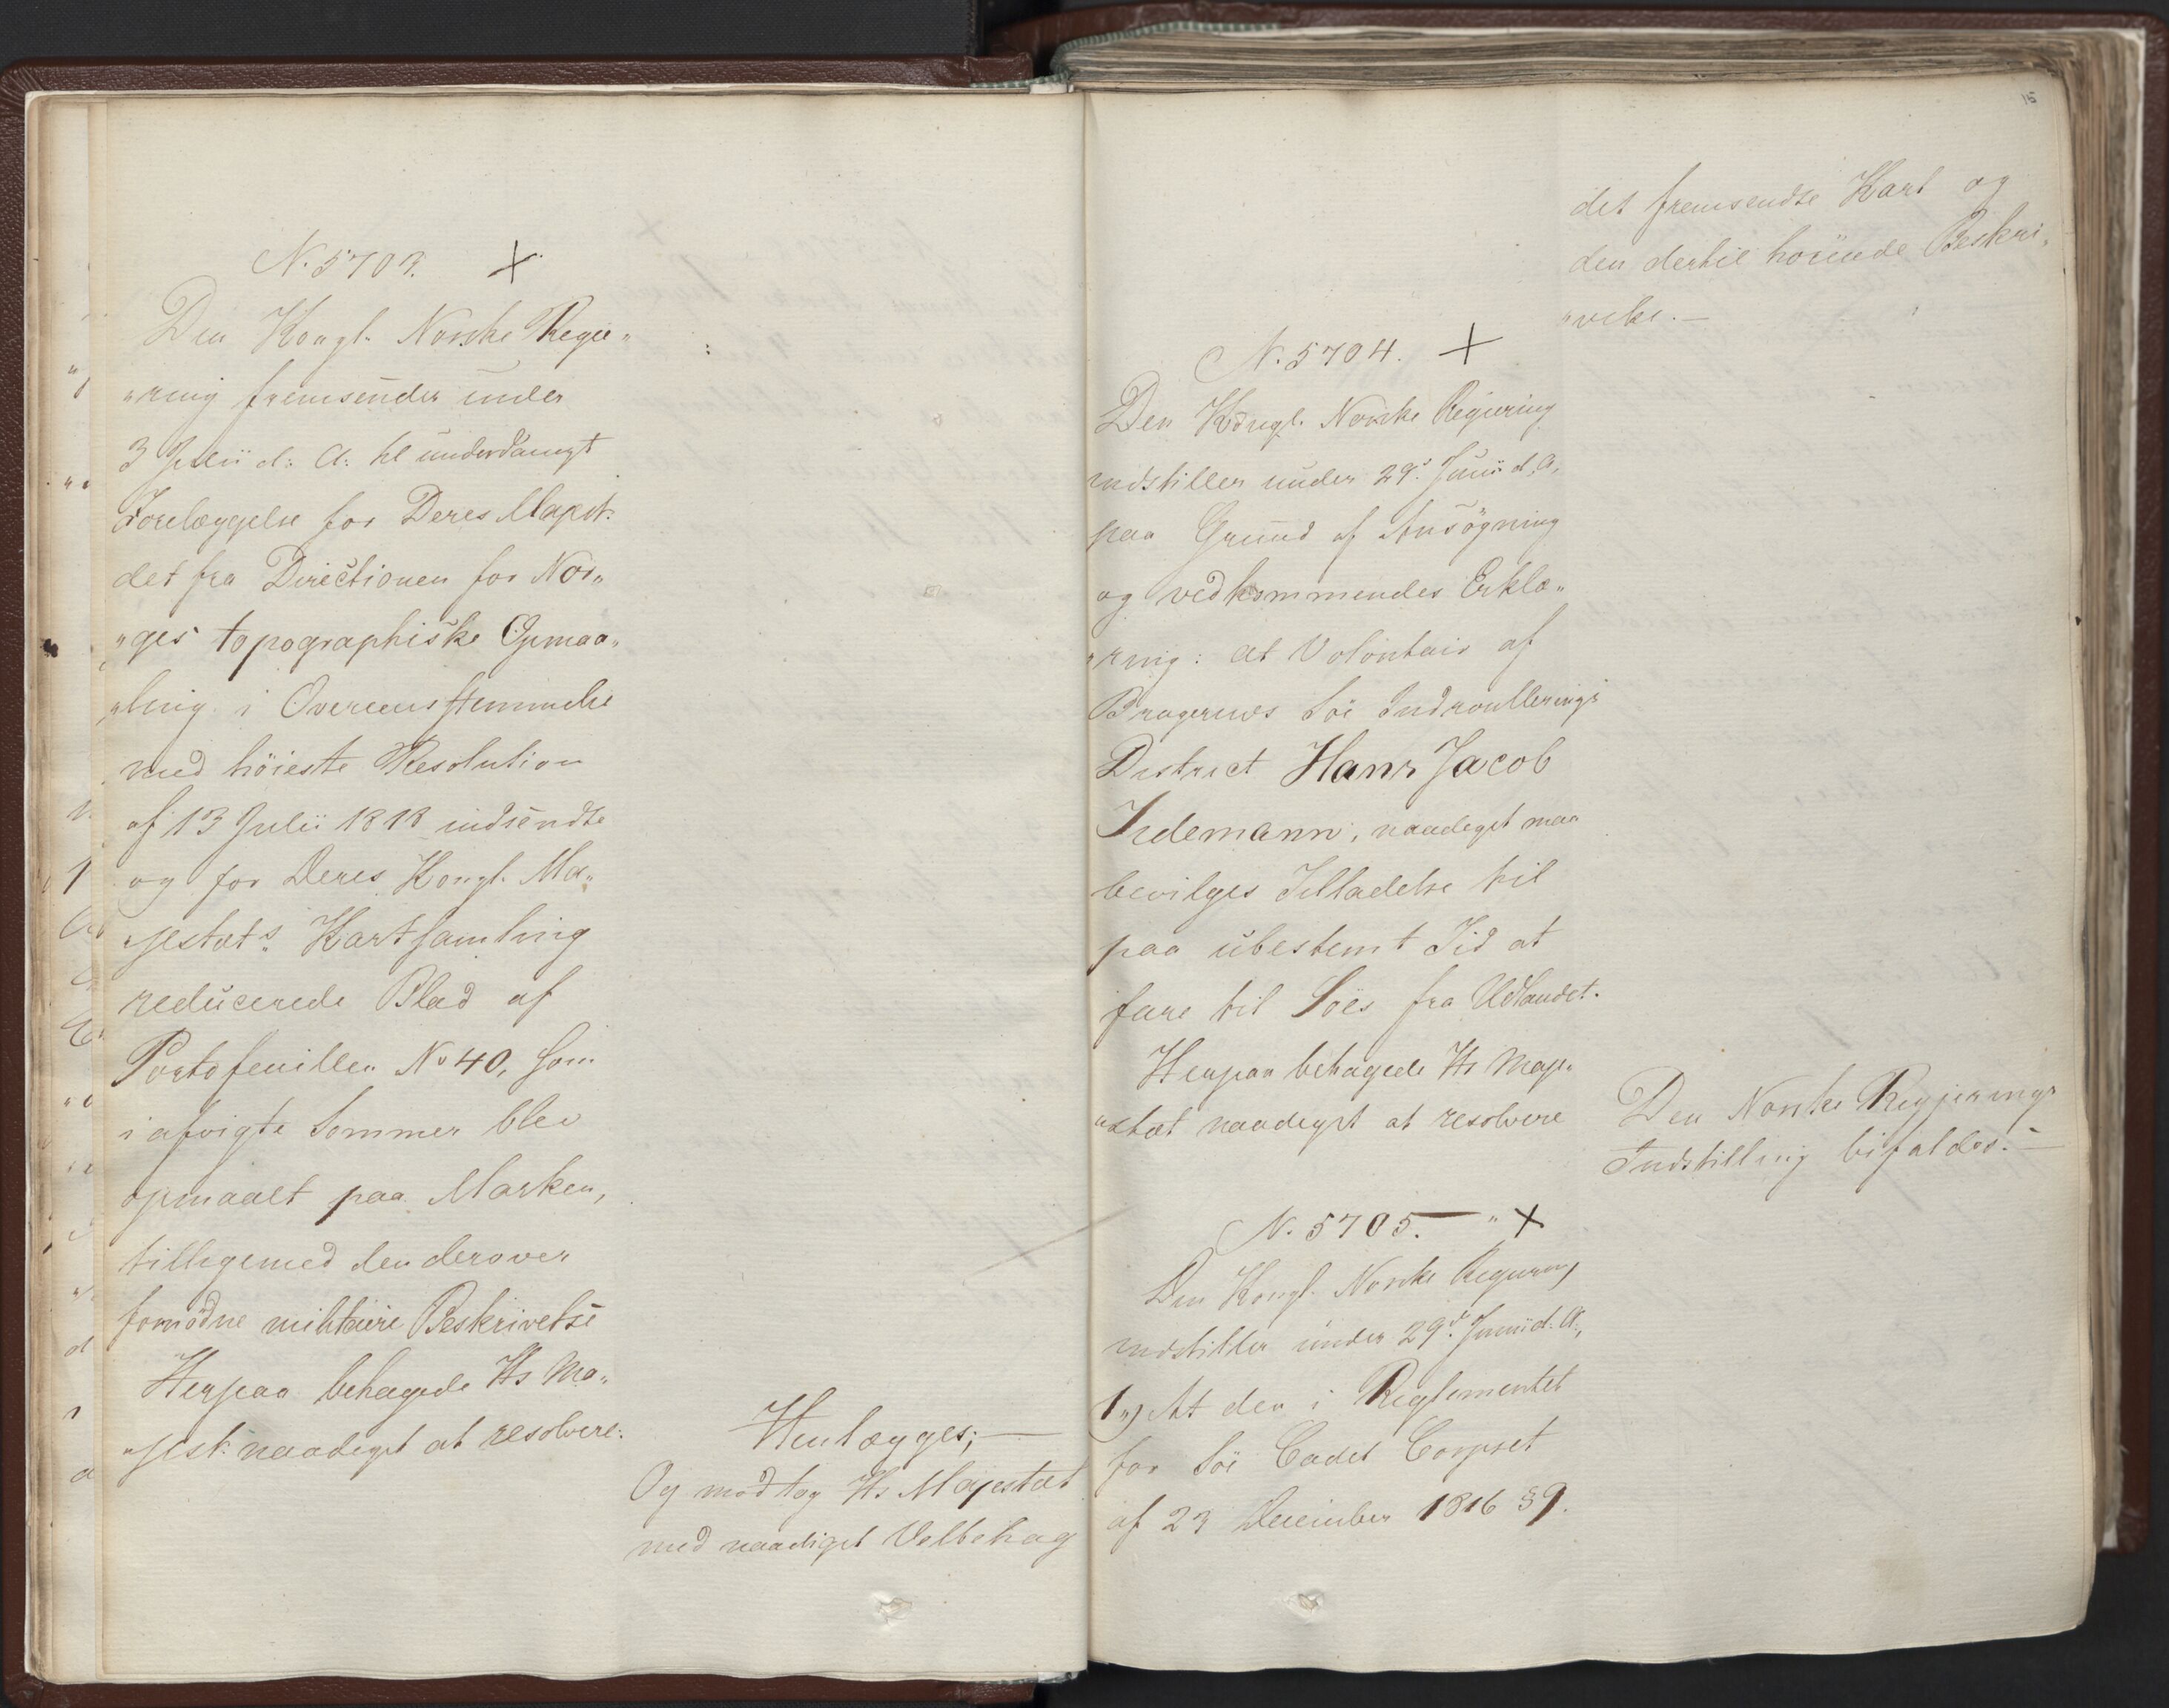 N. 5703. X
Den Kongl. Norske Regie„
„ring fremsender under
3 Julii d: A: til underdanigst
Forelæggelse for Deres Majest.
det fra Directionen for Nor„
„ges topographiske Opmaa„
„ling i Overeensstemmelse
med höieste Resolution
af 13 Julii 1818 indsendte
og for Deres Kongl. Ma„
„jestæts Kartsamling
reducerede Blad af
Portofeuillen No 40, som
i afvigte Sommer blev
opmaalt paa Marken,
tilligemed den derover
fornödne militaire Beskrivelse
Herpaa behagede Hs Ma„
„jest. naadigst at resolvere:
Henlægges; —
Og modtog Hs Majestæt
med naadigst Velbehag
15
det fremsendte Kart og
den dertil hörende Beskri„
„velse. —
N. 5704. X
Den Kongl. Norske Regiering
indstiller under 29d Junii d. A.
paa Grund af Ansögning
og vedkommendes Erklæ„
„ring: at Volontair af
Bragernes Söe Indroullerings
District Hans Jacob
Tidemann, naadigst maa
bevilges Tilladelse til
paa ubestemt Tid at
fare til Söes fra Udlandet.
Herpaa behagede Hs Maje„
„stæt naadigst at resolvere
Den Norske Regjerings
Indstilling bifaldes. —
N. 5705. — „ X
Den Kongl. Norske Regiering
indstiller under 29d Junii d. A.,
1„) At den i Reglementet
for Söe Cadet Corpset
af 23 December 1816 § 9.